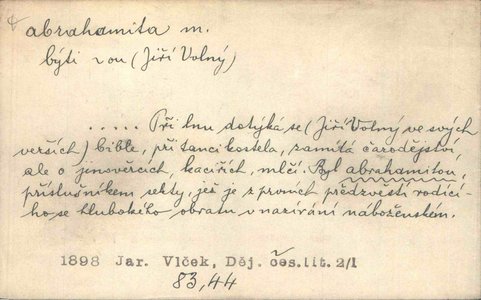 abrahamita m.
býti -ou (Jiří Volný)
..... Při tom dotýká se (Jiří Volný ve svých
verších) bible, při tanci kostela, zamítá čarodějství,
ale o jinověrcích, kacířích, mlčí. Byl abrahamitou,
příslušníkem sekty, jež je z prvních předzvěstí rodící-
ho se hlubokého obratu v nazírání náboženském.
1898 Jar. Vlček, Děj. čes.lit. 2/1
83,44